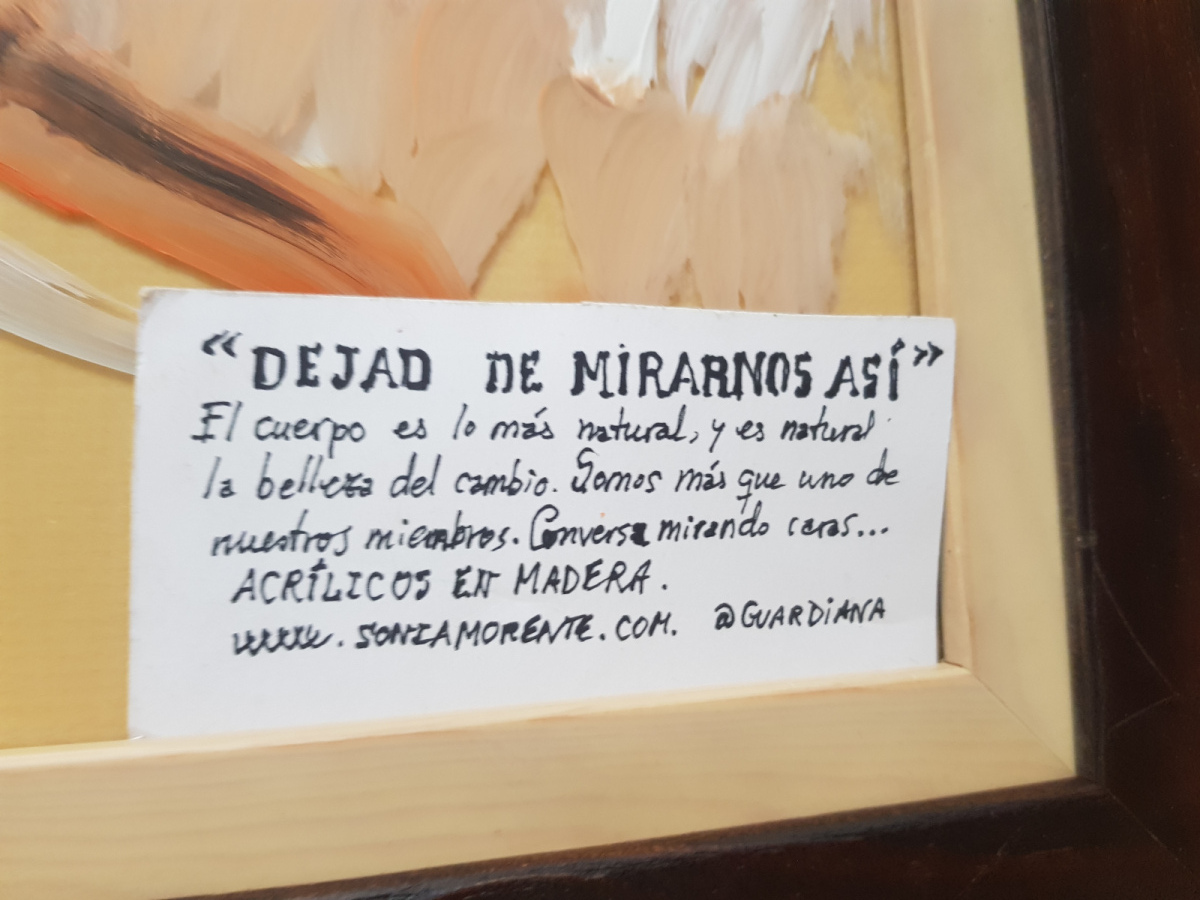 «DEJAD DE MIRARNOS ASÍ»
El cuerpo es lo más natural, y es natural
la belleza del cambio. Somos más que uno de
nuestros miembros. Conversa mirando caras...
ACRÍLICOS EN MADERA.
www.SONIAMORENTE.COM. @GUARDIANA